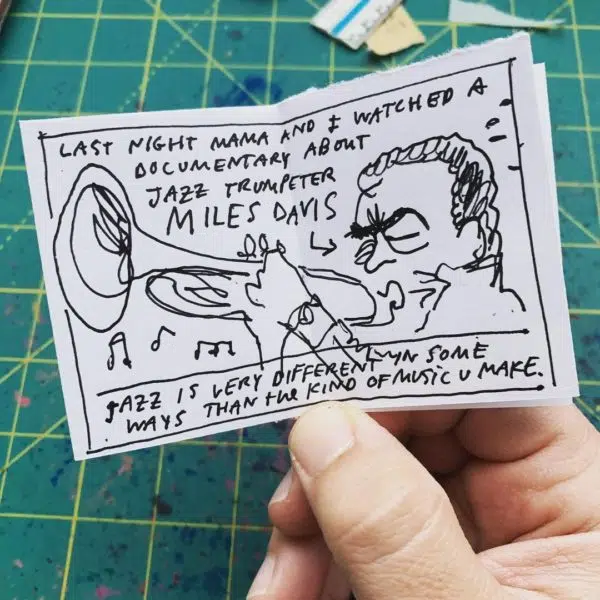 LAST NIGHT MAMA AND I WATCHED A
DOCUMENTARY ABOUT
JAZZ TRUMPETER
MILES DAVIS
JAZZ IS VERY DIFFERENT IN SOME
WAYS THAN the KIND OF MUSIC U MAKE.